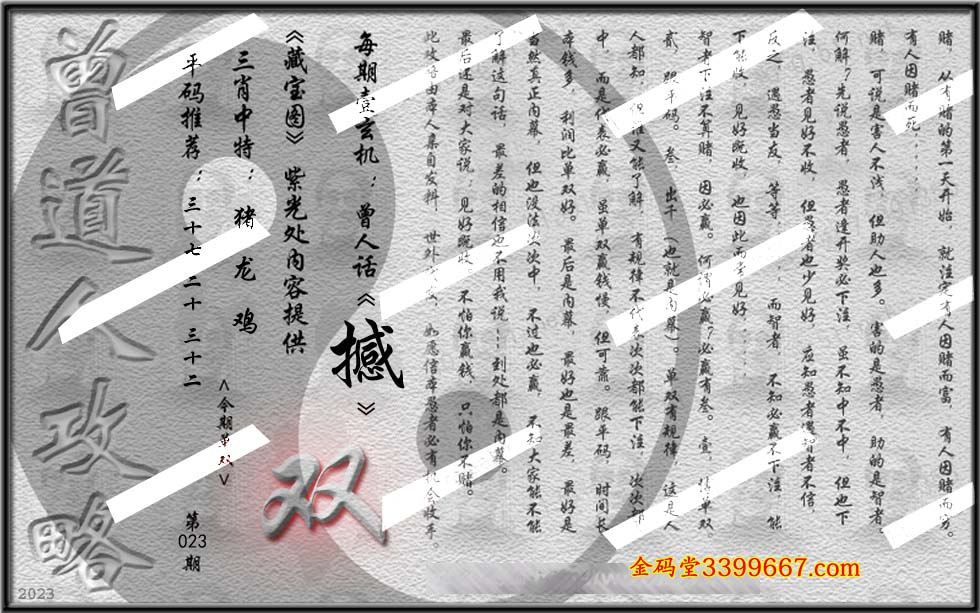 赌，从有赌的第一天开始，就注定有人因赌而富，有人因赌而穷。
有人因赌而死......
赌，可说是害人不浅，但助人也多。害的是愚者，助的是智者。
何解？先说愚者，愚者逢开奖必下注，虽不知中不中，但也下
注，愚者见好不收，但愚者也少见好，应知愚者遇智者不信，
反之，遇愚当友，等等......而智者，不知必赢不下注，能
下能收，见好既收，也因此而常见好......
智者下注不算赌，因必赢。何谓必赢？必赢有叁。壹，单双，
贰，跟平码。叁，出千（也就是内幕）。单双有规律，这是人
人都知，但谁又能了解，有规律不代表次次都能下注，次次都
中，而是代表必赢，虽单双赢钱慢，但可靠。跟平码，时间长
本钱多，利润比单双好。最后是内幕，最好也是最差，最好是
当然真正内幕，但也没法次次中，不过也必赢，不知大家能不能
了解这句话，最差的相信也不用我说......到处都是内幕。
最后还是对大家说：见好既收。不怕你赢钱，只怕你不赌。
此攻略由本人亲自发料，世外，如愿信本愚者必有机会收手。
每期壹玄机：曾人话《撼》
《藏宝图》紫光处内容提供
三肖中特：猪 龙 鸡
<今期单双>
双
平码推荐：三十七 二十 三十二
第023期
曾道人攻略
金码堂3399667.com
2023